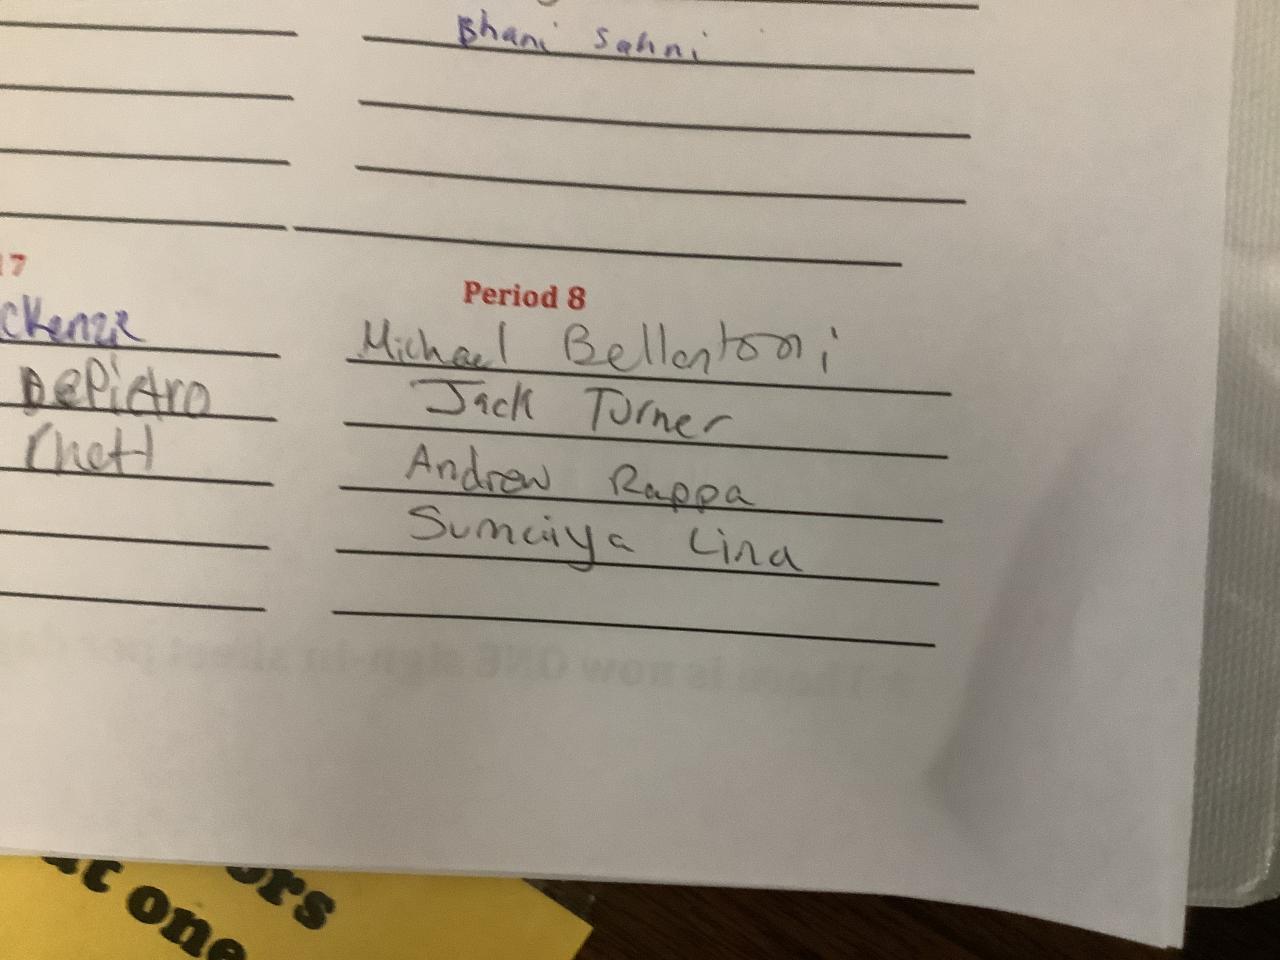 Bhani Sahni
17
ckenzie
DePietro
Rhett
Period 8
Michael Bellantoni
Jack Turner
Andrew Rappa
Sumaiya Lina
ors
at one